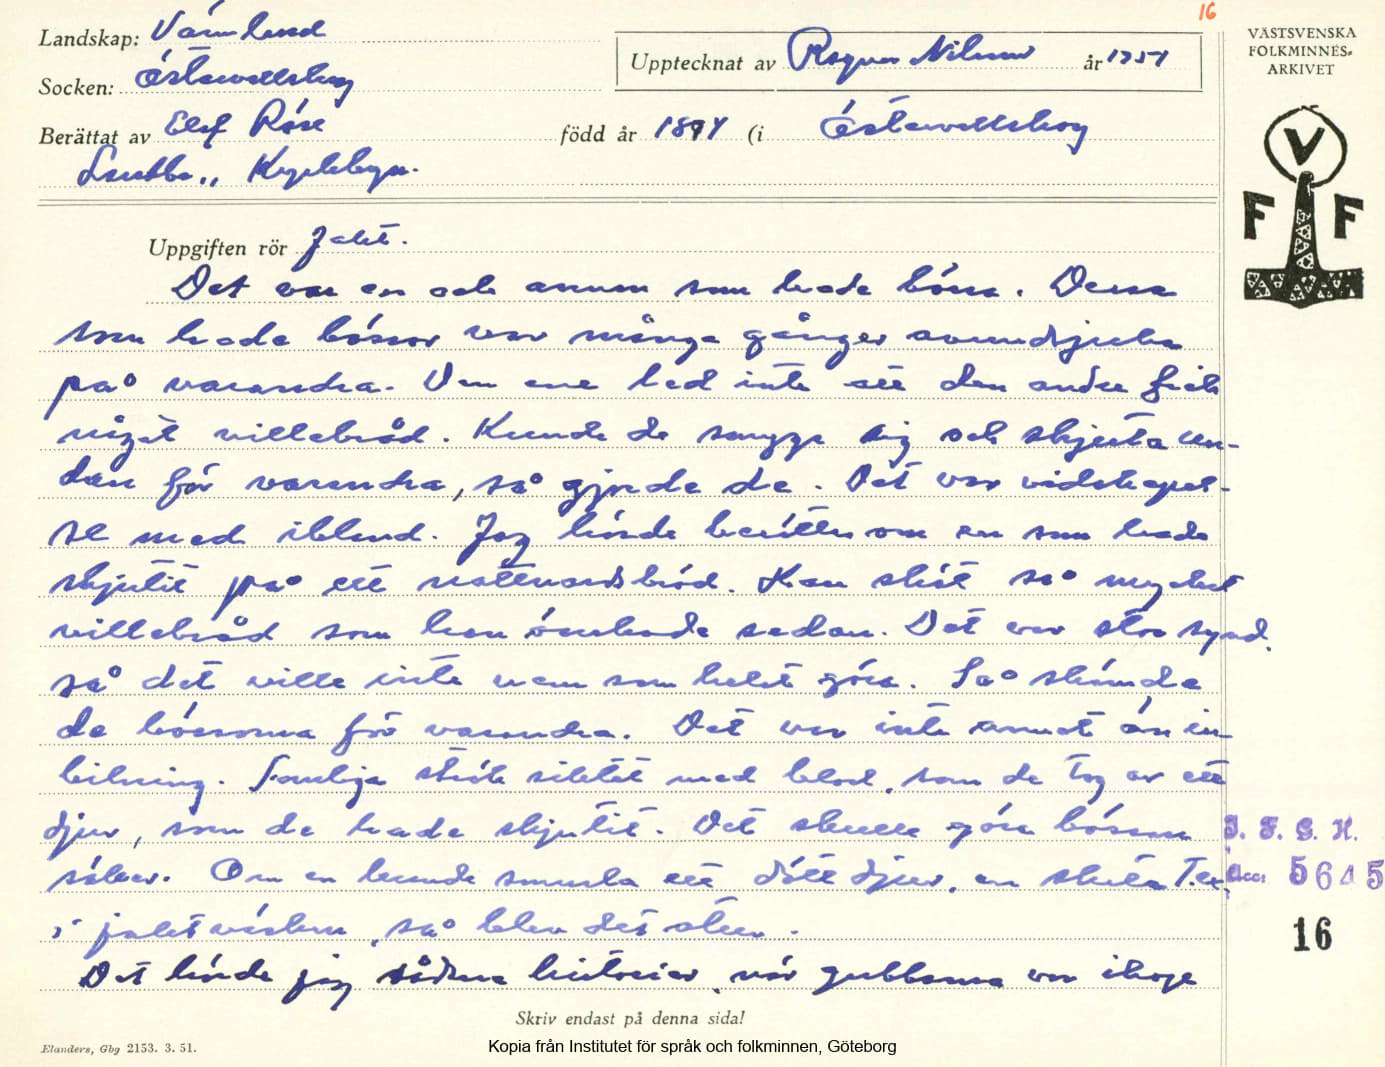 16
Landskap: Värmland
Socken: Östervallskog
Upptecknat av Ragnar Nilsson år 1951
VÄSTSVENSKA
FOLKMINNES-
ARKIVET
V
F F
Berättat av Elof Röse född år 1894 (i Östervallskog
Uppgiften rör Jakt.
Det var en och annan som hade bössa. Dessa
som hade bössor var många gånger avundsjuka
på varandra. Den ene led inte att den andre fick
något villebråd. Kunde de smyga sig och skjuta un-
dan för varandra, så gjorde de. Det var vidskepel-
se med ibland. Jag hörde berättas om en som hade
skjutit på ett nattvardsbröd. Han sköt så mycket
villebråd som han önskade sedan. Det var stor synd,
så det ville inte vem som helst göra. Så skämde
de bössorna för varandra. Det var inte annat än in-
billning. Somliga strök siktet med blod, som de tog av ett
djur, som de hade skjutit. Det skulle göra bössan
säker. Om en kunde smussla ett dött djur, en skata t.ex.
i jaktväskan, så blev det
Det hörde jag sådana historier, när gubbarna var ihop
I. F. G. H.
Acc: 5645
16
Skriv endast på denna sida!
Elanders, Gbg 2153. 3. 51.
Kopia från Institutet för språk och folkminnen, Göteborg